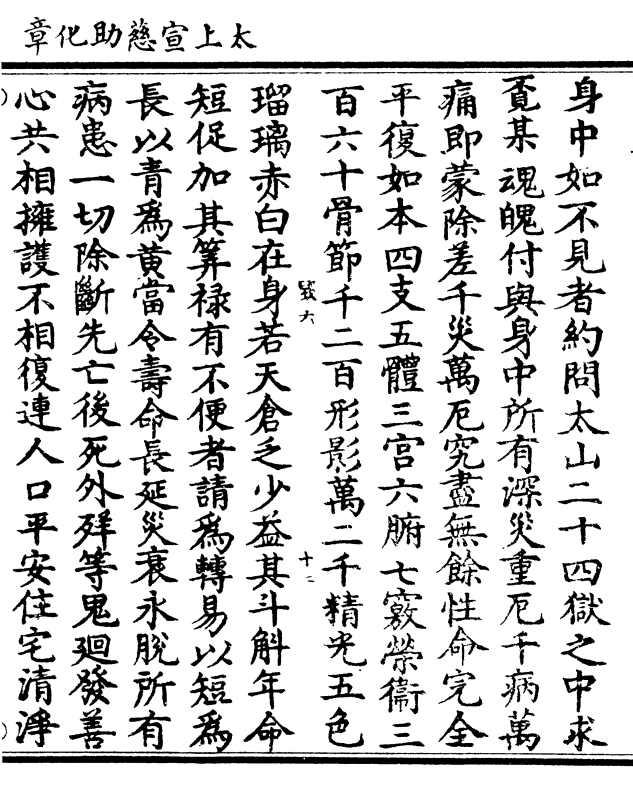 太上宣慈助化章
身中如不見者約問太山二十四獄之中求
覔某魂魄付與身中所有深災重厄千病萬
痛即蒙除差千災萬厄究盡無餘性命完全
平復如本四支五體三宮六腑七竅榮衞三
百六十骨節千二百形影萬二千精光五色
瑠璃赤白在身若天倉乏少益其斗斛年命
短促加其筭禄有不便者請爲轉易以短爲
長以青爲黄當令壽命長延災衰永脫所有
病患一切除斷先亡後死外殃等鬼廻發善
心共相擁護不相復連人口平安住宅清淨
十二